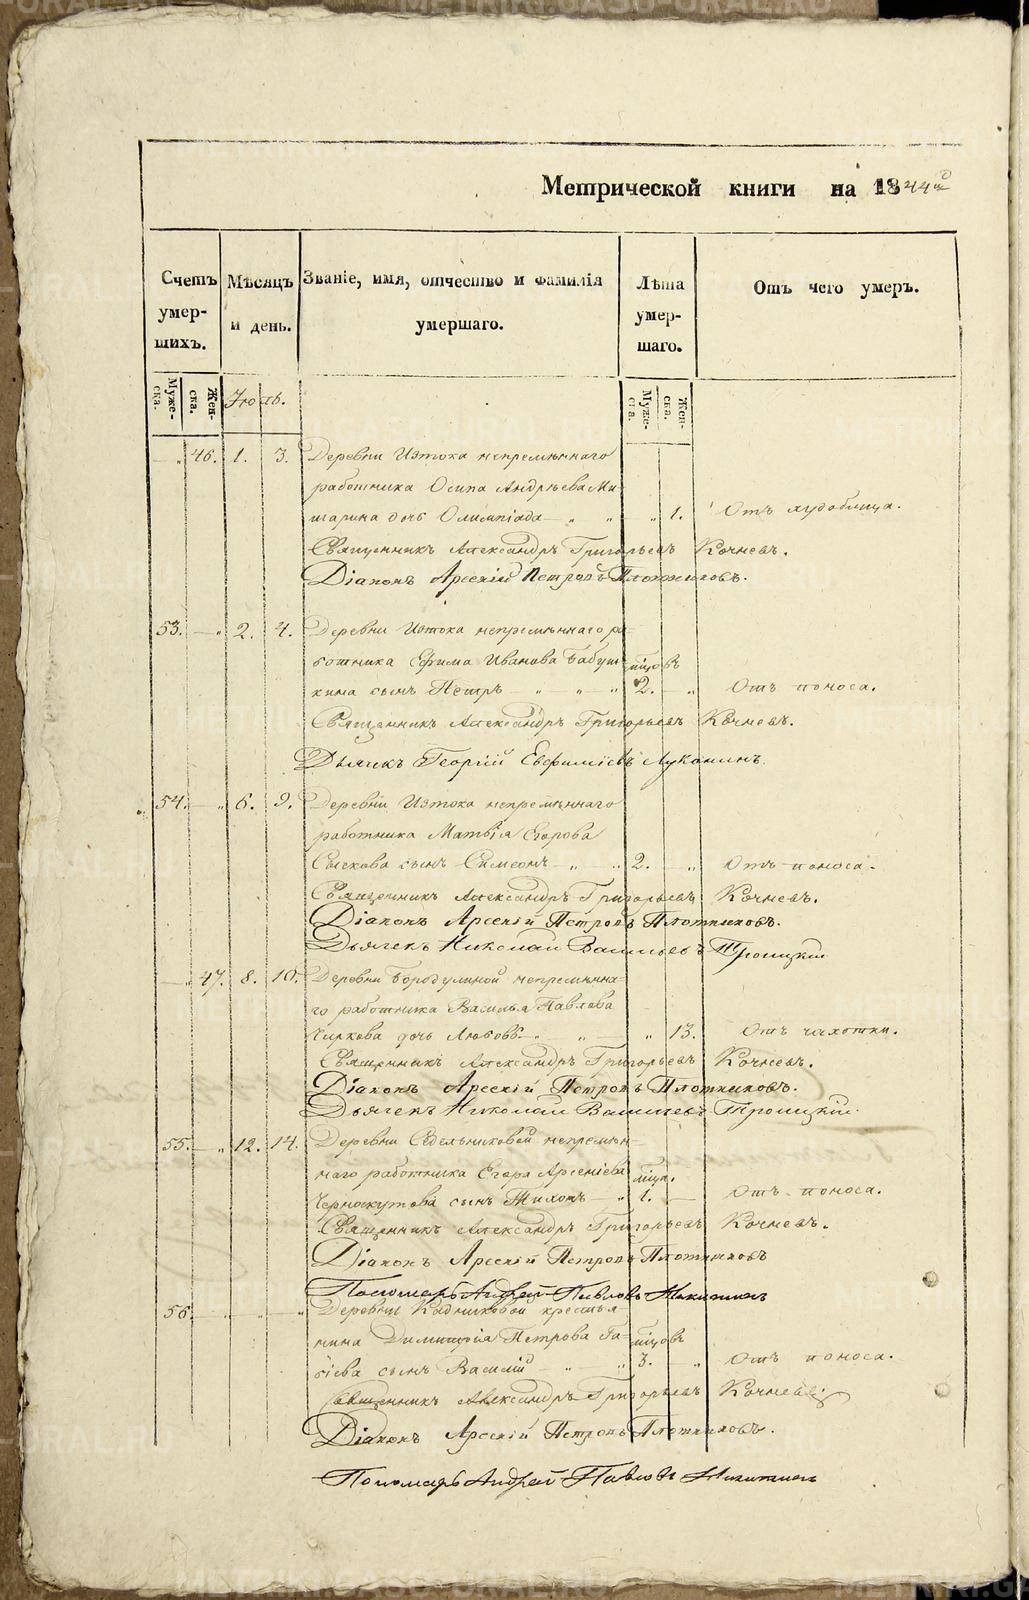 Метрической книги на 1844 го
Счетъ умер-шихъ.
Мѣсяцъ и день.
Званіе, имя, отчество и фамилія умершаго.
Лѣта умер-шаго.
Отъ чего умеръ.
Муже-ска. Жен-ска. Іюль. Муже-ска. Жен-ска.
46. 1. 3. Деревни Изтока непремѣннаго
работника Осипа Андрѣева Ми-
шарина дочь Олимпіада 1. Отъ
Священникъ Александръ Григорьевъ Кочневъ.
Діаконъ Арсеній Петровъ Плотниковъ.
53. 2. 4. Деревни Изтока непремѣннаго ра-
ботника Ефима Иванова Бабуш- мѣсцовъ
кина сынъ Петръ 2. Отъ поноса.
Священникъ Александръ Григорьевъ Кочневъ.
Дьячекъ Георгій Евфиміевъ Луканинъ.
54. 6. 9. Деревни Изтока непремѣннаго
работника Матвія Егорова
Сыскова сынъ Симеонъ 2. Отъ поноса.
Священникъ Александръ Григорьевъ Кочневъ.
Діаконъ Арсеній Петровъ Плотниковъ.
Дьячекъ Николай Васильевъ Троицкій
47. 8. 10. Деревни Бородулиной непремѣнна-
го работника Василья Павлова
Чиркова дочь Любовь 13. Отъ чахотки.
Священникъ Александръ Григорьевъ Кочневъ.
Діаконъ Арсеній Петровъ Плотниковъ.
Дьячекъ Николай Васильевъ Троицкій.
55. 12. 14. Деревни Седельниковой непремѣн-
наго работника Егора Арсеніева мѣсц.
сынъ Тихонъ 1. Отъ поноса.
Священникъ Александръ Григорьевъ Кочневъ.
Діаконъ Арсеній Петровъ Плотниковъ
Пономарь Андрей Павловъ Никитинъ
56. Деревни Кадниковой крестья-
нина Димитрія Петрова Га- мѣсцовъ
сынъ Василій 3. Отъ поноса.
Священникъ Александръ Григорьевъ Кочневъ
Діаконъ Арсеній Петровъ Плотниковъ.
Пономарь Андрей Павловъ Никитинъ